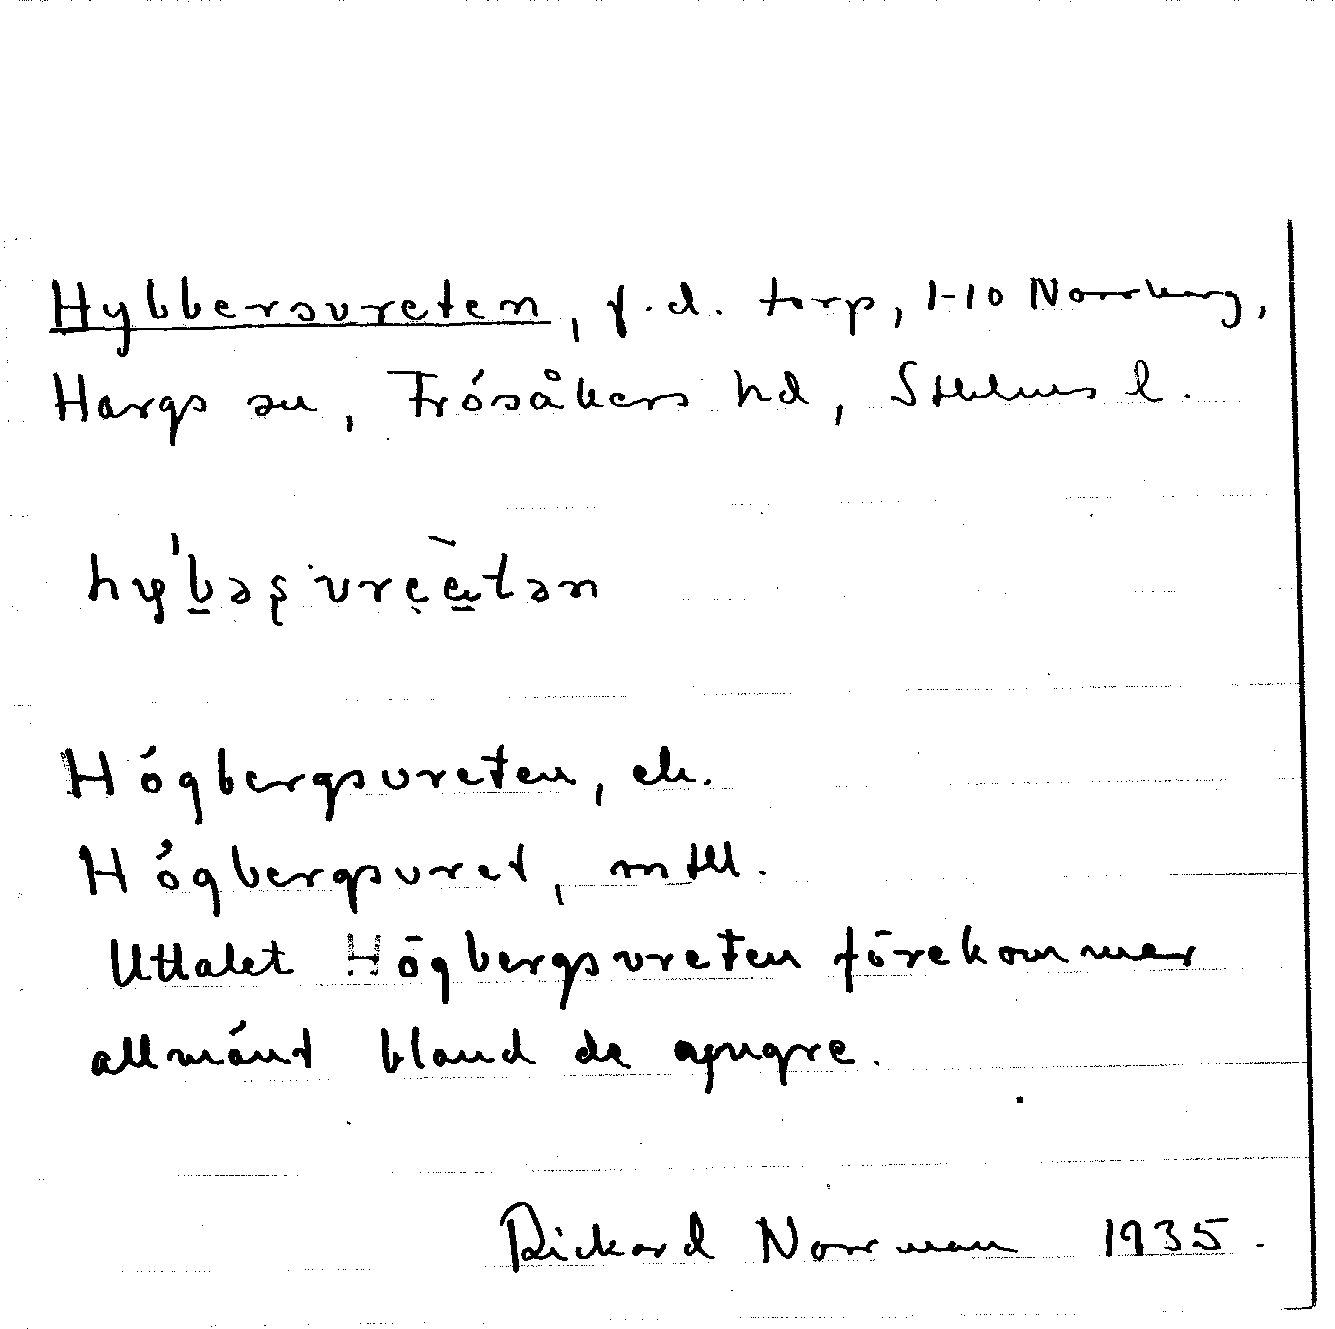 Hybbersvreten, f.d. torp, 1-10 Norrberg,
Hargs sn, Frösåkers hd, Sthlms l.
hy'bəş vrètən
Högbergsvreten, ek.
Högbergsvret, mtll.
Uttalet Högbergsvreten förekommer
allmänt bland de ayngre.
Rickard Norrman 1935.